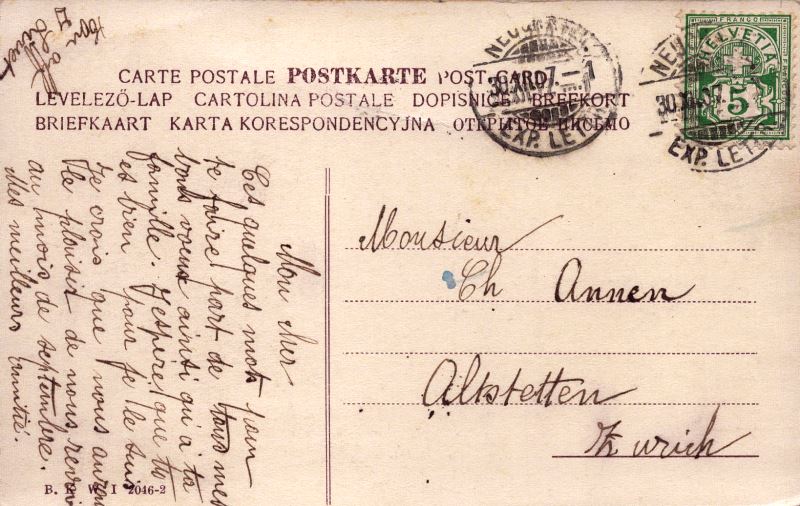 CARTE POSTALE POSTKARTE POST CARD
LEVELEZŐ-LAP CARTOLINA POSTALE DOPISNICE BREFKORT
BRIEFKAART KARTA KORESPONDENCYJNA ОТКРЫТОЕ ПИСЬМО
30.XII.07.-1
EXP. LETT.
30.XII.07.
EXP. LETT.
FRANCO
HELVETIA
5
Monsieur
Ch Annen
Altstetten
Zurich
Mon cher
Ces quelques mots pour
te faire part de tous mes
bons voeux ainsi qu'à ta
famille. J'espère que tu
es bien pour je le suis
Je crois que nous aurons
le plaisir de nous revoir
au mois de septembre.
Mes meilleurs amitié.
B. K. W. I 2046-2